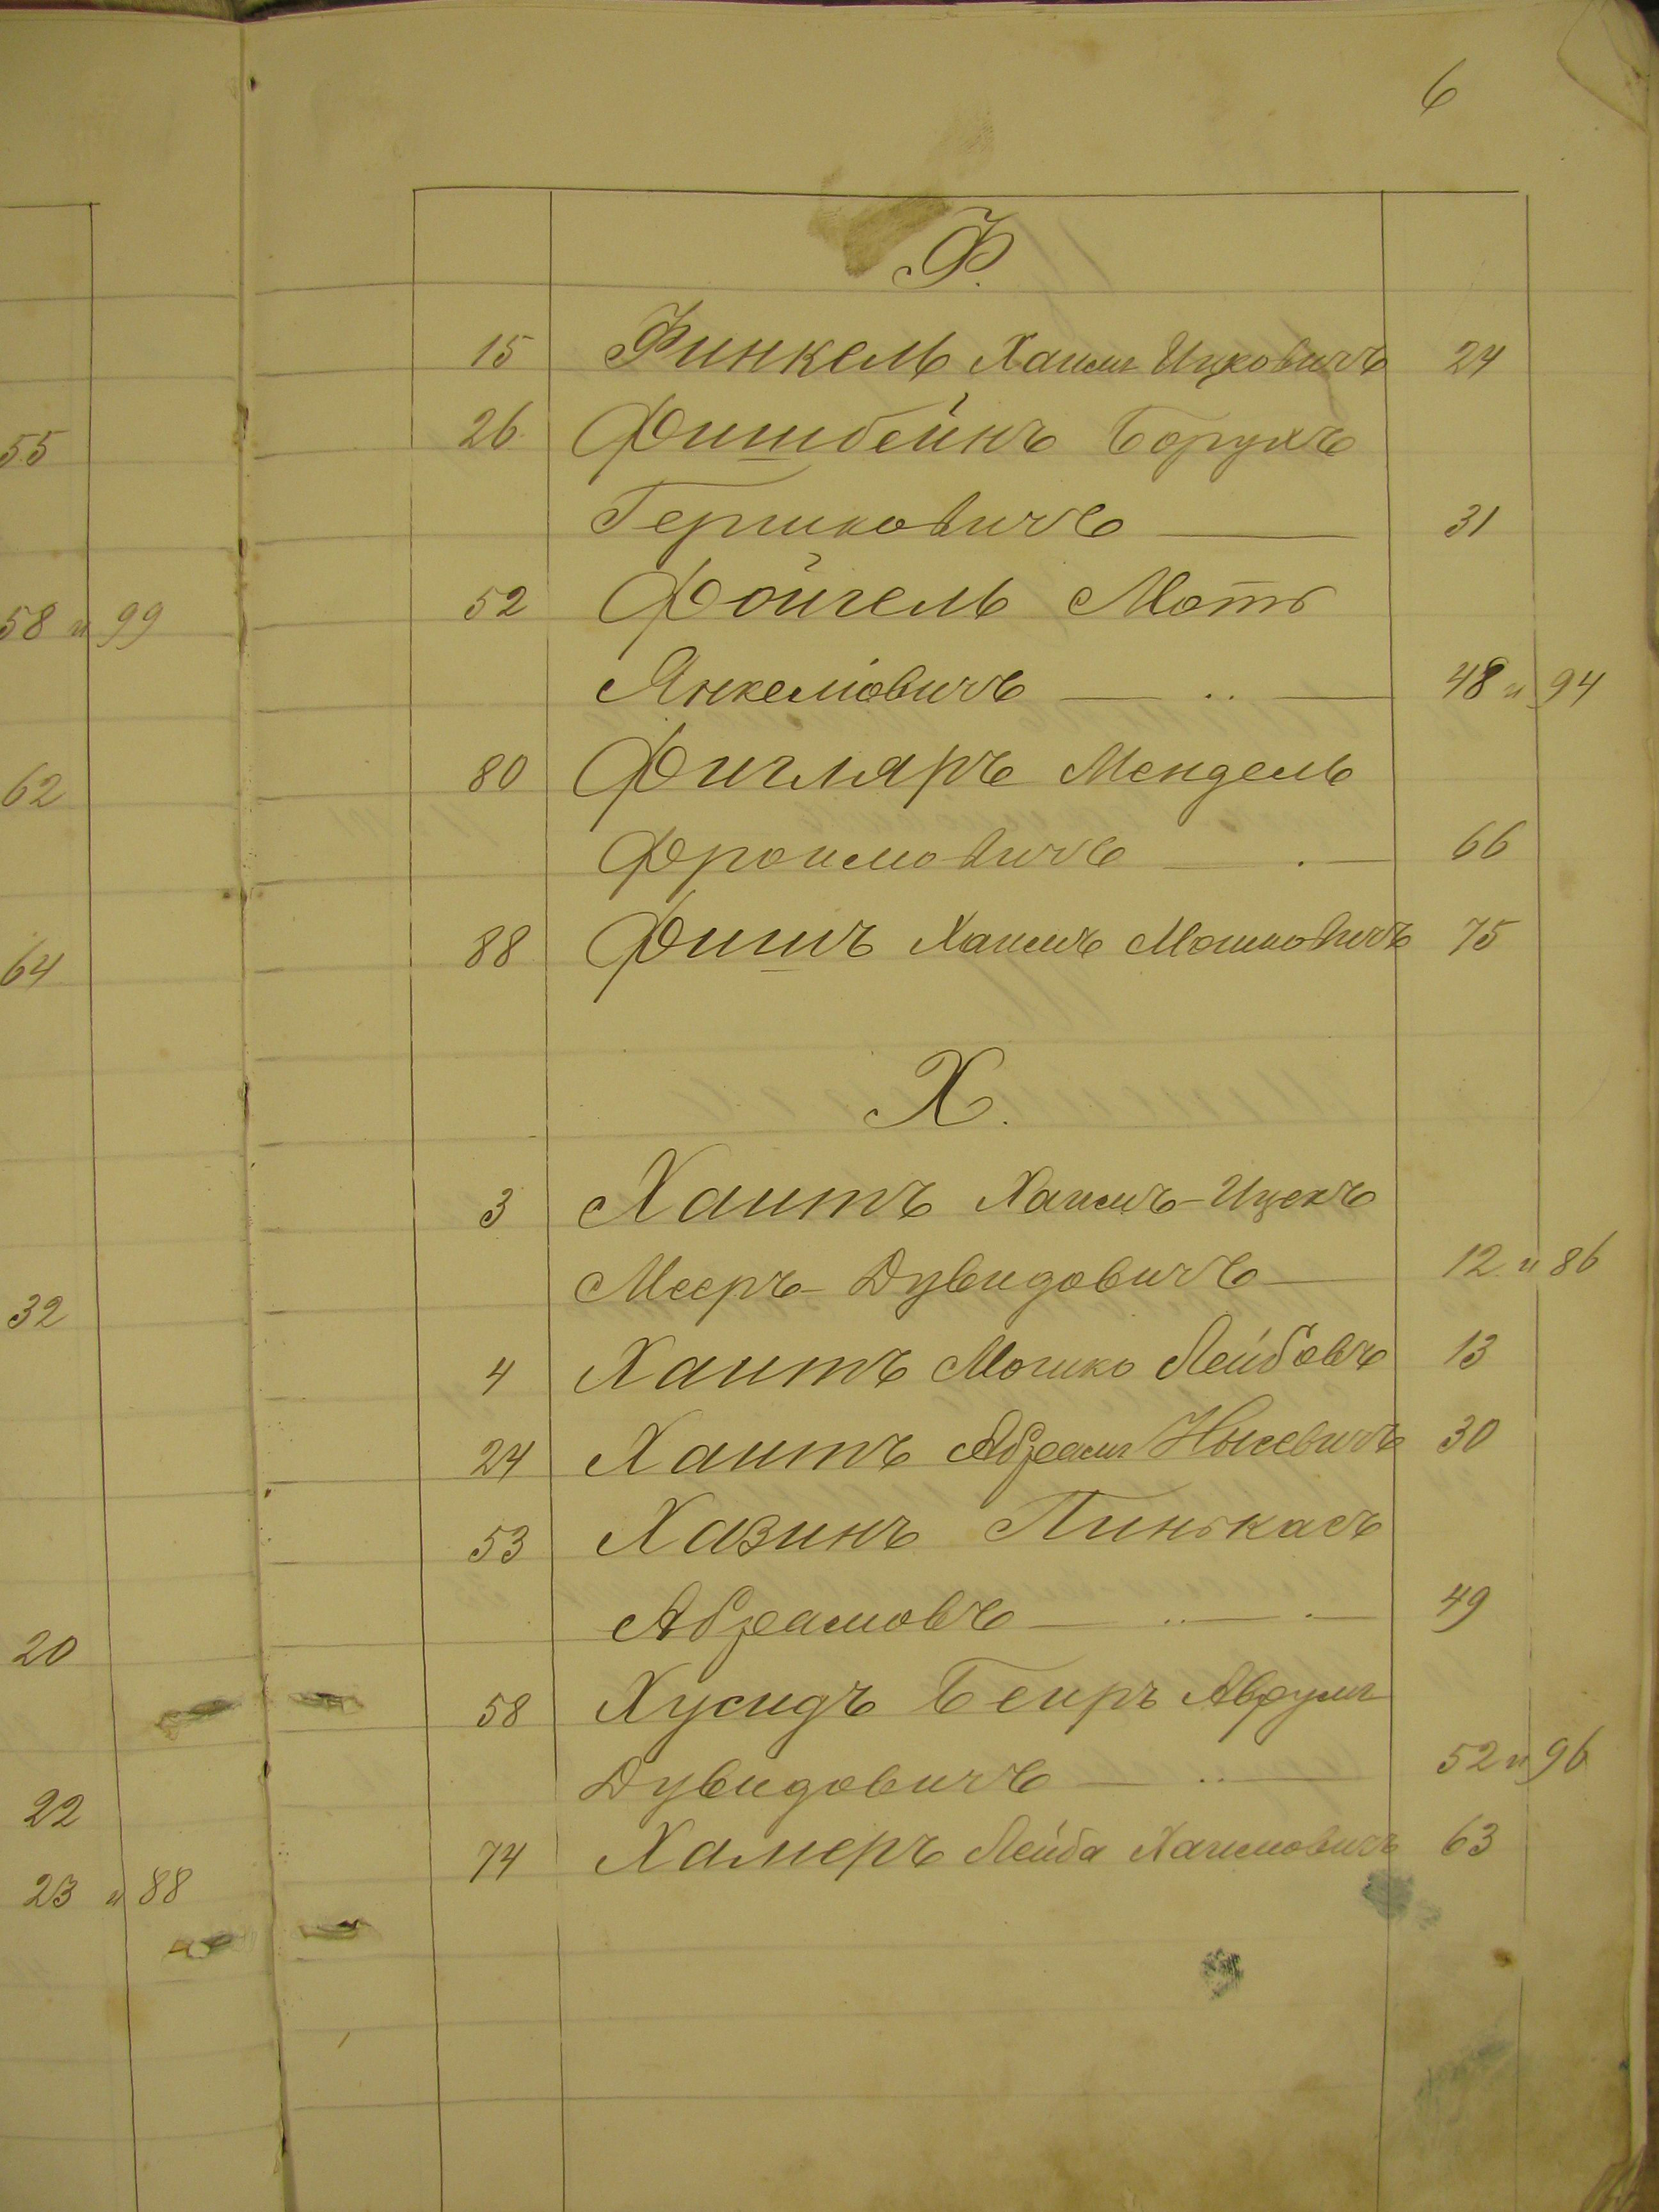 6
Ф.
15 Финкель Хаимъ Ицковичъ 24
26 Фишбейнъ Борухъ
Гершковичъ 31
52 Фойгель Моть
Янкеліовичъ 48 и 94
80 Фигляръ Мендель
Фроимовичъ 66
88 Фишъ Хаимъ Мошковичъ 75
Х.
3 Хаитъ Хаимъ-Ицекъ
Мееръ-Дувидовичъ 12 и 86
4 Хаитъ Мошко Лейбовъ 13
24 Хаитъ Абрамъ Нысевичъ 30
53 Хазинъ Пинькасъ
Абрамовъ 49
58 Хусидъ Беиръ Аврумъ
Дувидовичъ 52 и 96
74 Хамеръ Лейба Хаимовичъ 63
55
58 и 99
62
64
32
20
22
23 и 88